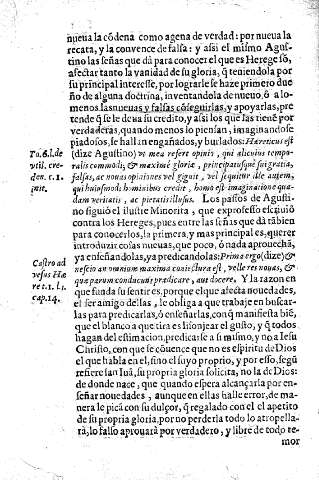 nueua la cõdena como agena de verdad: por nueua la
recata, y la convence de falsa: y assi el mismo Agus-
tino las señas que dà para conocer el que es Herege sõ,
afectar tanto la vanidad de su gloria, q̃ teniendola por
su principal interesse, por lograrse se haze primero due
ño de alguna doctrina, inventandola de nueuo, ò a lo
menos las nueuas y falsas cõseguirlas, y apoyarlas, pre
tende q̃ se le de a su credito, y assi los que las tiene por
verdaderas, quando menos lo piensan, imaginandose
piadosos, se hallan engañados, y burlados: Hæreticus est
(dize Agustino) vt mea refert opinio, qui alicuius tempo-
ralis commodi, & maximè gloria, principatusque sui gratia,
falsas, ac nouas opiniones vel gignit, vel sequitur ille autem,
qui huiusmodi hominibus credit, homo est imaginatione qua-
dam veritatis, ac pietatis illusus. Los passos de Agusti-
no siguiò el ilustre Minorita, que exprofesso escriuiò
contra los Hereges, pues entre las señas que dà tãbien
para conocerlos, la primera, y mas principal es, querer
introduzir cosas nueuas, que poco, ò nada aprouechã,
ya enseñandolas, ya predicandolas: Prima ergo (dize) &
nescio an omnium maxima coniectura est, velle res nouas, &
quæ parum conducunt prædicare, aut docere. Y la razon en
que funda su sentir es, porque el que afecta nouedades,
el ser amigo dellas, le obliga a que trabaje en buscar-
las para predicarlas, ò enseñarlas, con q̃ manifiesta biẽ,
que el blanco a que tira es lisonjear el gusto, y q̃ todos
hagan del estimacion, predicase a si mismo, y no a Iesu
Christo, con que se cõuence que no es espiritu de Dios
el que habla en el, sino el suyo proprio, y por esso, segũ
refiere san Iuã, su propria gloria solicita, no la de Dios:
de donde nace, que quando espera alcançarla por en-
señar nouedades, aunque en ellas halle error, de ma-
nera le picà con su dulçor, q̃ regalado con el apetito
de su propria gloria, por no perderla todo lo atropella-
rà, lo falso aprouarà por verdadero, y libre de todo te-
mor
To. 6. l. de
vtili. cre-
den. c. 1.
init.
Castro ad
versus Hæ
re t. 1. l. 1.
cap. 14.